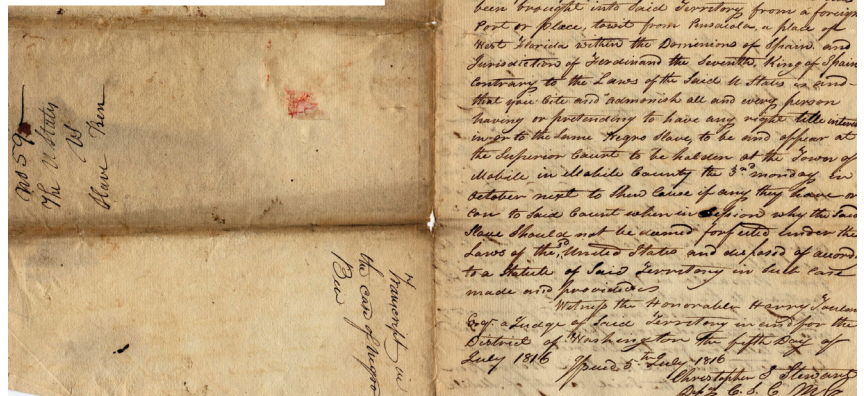 No 59
The U States
vs
Slave Ben
Transcript in
the case of Negro
Ben
been brought into said Territory from a foreign
Port or place, towit from Pensacola, a place of
West Florida within the Dominions of Spain and
Jurisdiction of Ferdinand the Seventh, King of Spain
Contrary to the Laws of the said U States and
that you Cite and admonish all and every person
having or pretending to have any right title interest
in or to the same Negro Slave, to be and appear at
the Superior Court to be holden at the Town of
Mobile in Mobile County the 3rd monday in
October next to shew Cause if any they have or
can to said Court when in session why the said
Slave Should not be deemed forfeited under the
Laws of the sd United States and disposed of accord
to a Statute of Said Territory in such case
made and provided
Witness the Honorable Harry Toulmin
Esqr a Judge of said Territory in and for the
District of Washington the fifth Day of
July 1816
Issued 5th July 1816
Christopher S Stewart
C. S. C. M C